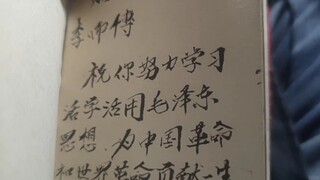 李师傅
祝你努力学习
活学活用毛泽东
思想.为中国革命
和世界革命贡献一生